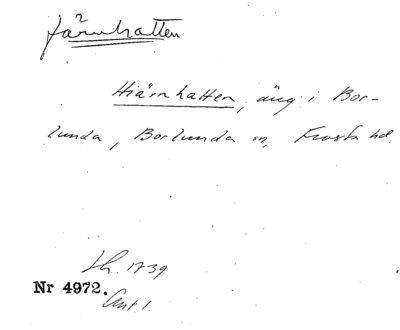 Järnhatten
Hiärnhatten, äng i Bor-
lunda, Borlunda sn, Frosta hd.
Lh. 1739
Nr 4972.
Ant 1.